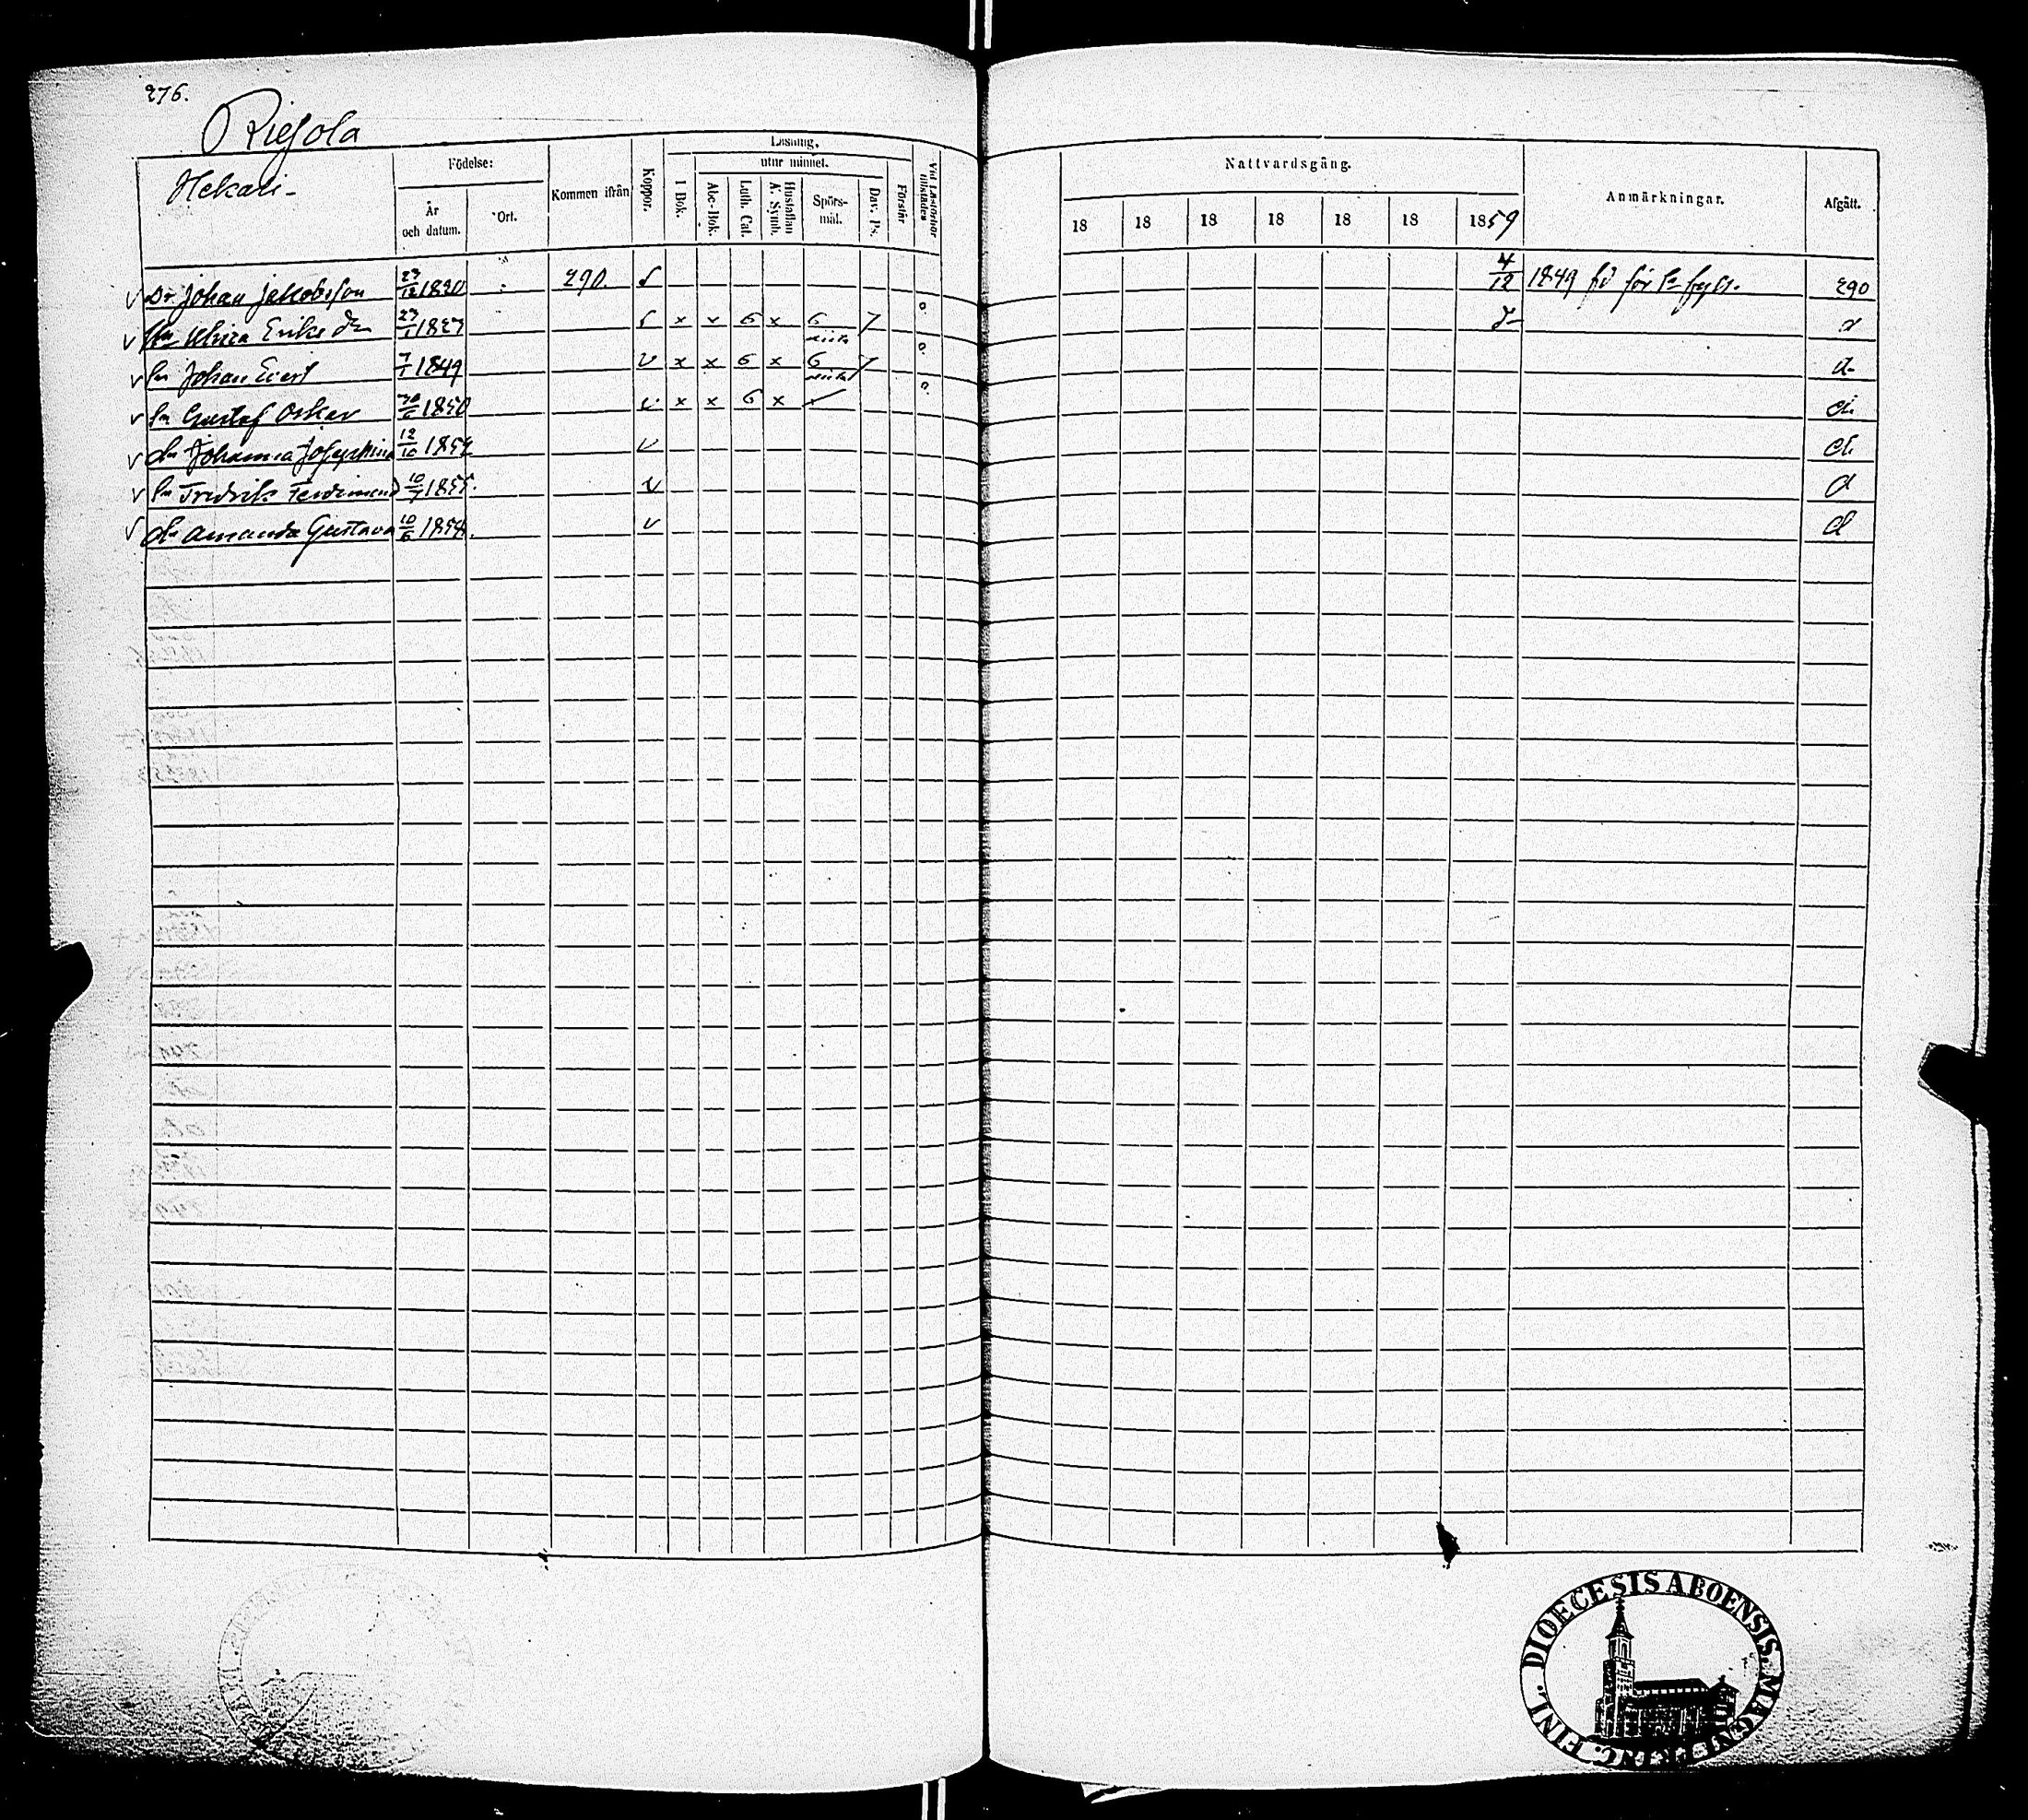 276.
Riesola
Hekali
Födelse:
År och datum.
Ort.
Kommen ifrån
Koppor.
Läsning.
utur minnet.
I Bok.
Abc-Bok.
Luth. Cat.
Hustaflan A. Symb.
Spörsmål.
Dav. Ps.
Förstår
Vid Läsförhör tillstädes
Nattvardsgång.
18 18 18 18 18 18 1859
Anmärkningar.
Afgått.
v Dr Johan Jakobsson 23/12 1820 290. 4/12 1849 290
v Ulrica Eriks dr 23/1 1827 x x 6 x 6
v Sn Johan Evert 7/1 1849 v x x 6 x 6
v Sn Gustaf Oskar 1850 v x x 6 x
v dr Johanna Josephina 12/10 1852 v
v Sn Fredrik Ferdinand 10/7 1855. v d
v dr Amanda Gustava 10/6 1858. v d
DIOECESIS ABOENSIS. MAGNI PRINC. FINL.